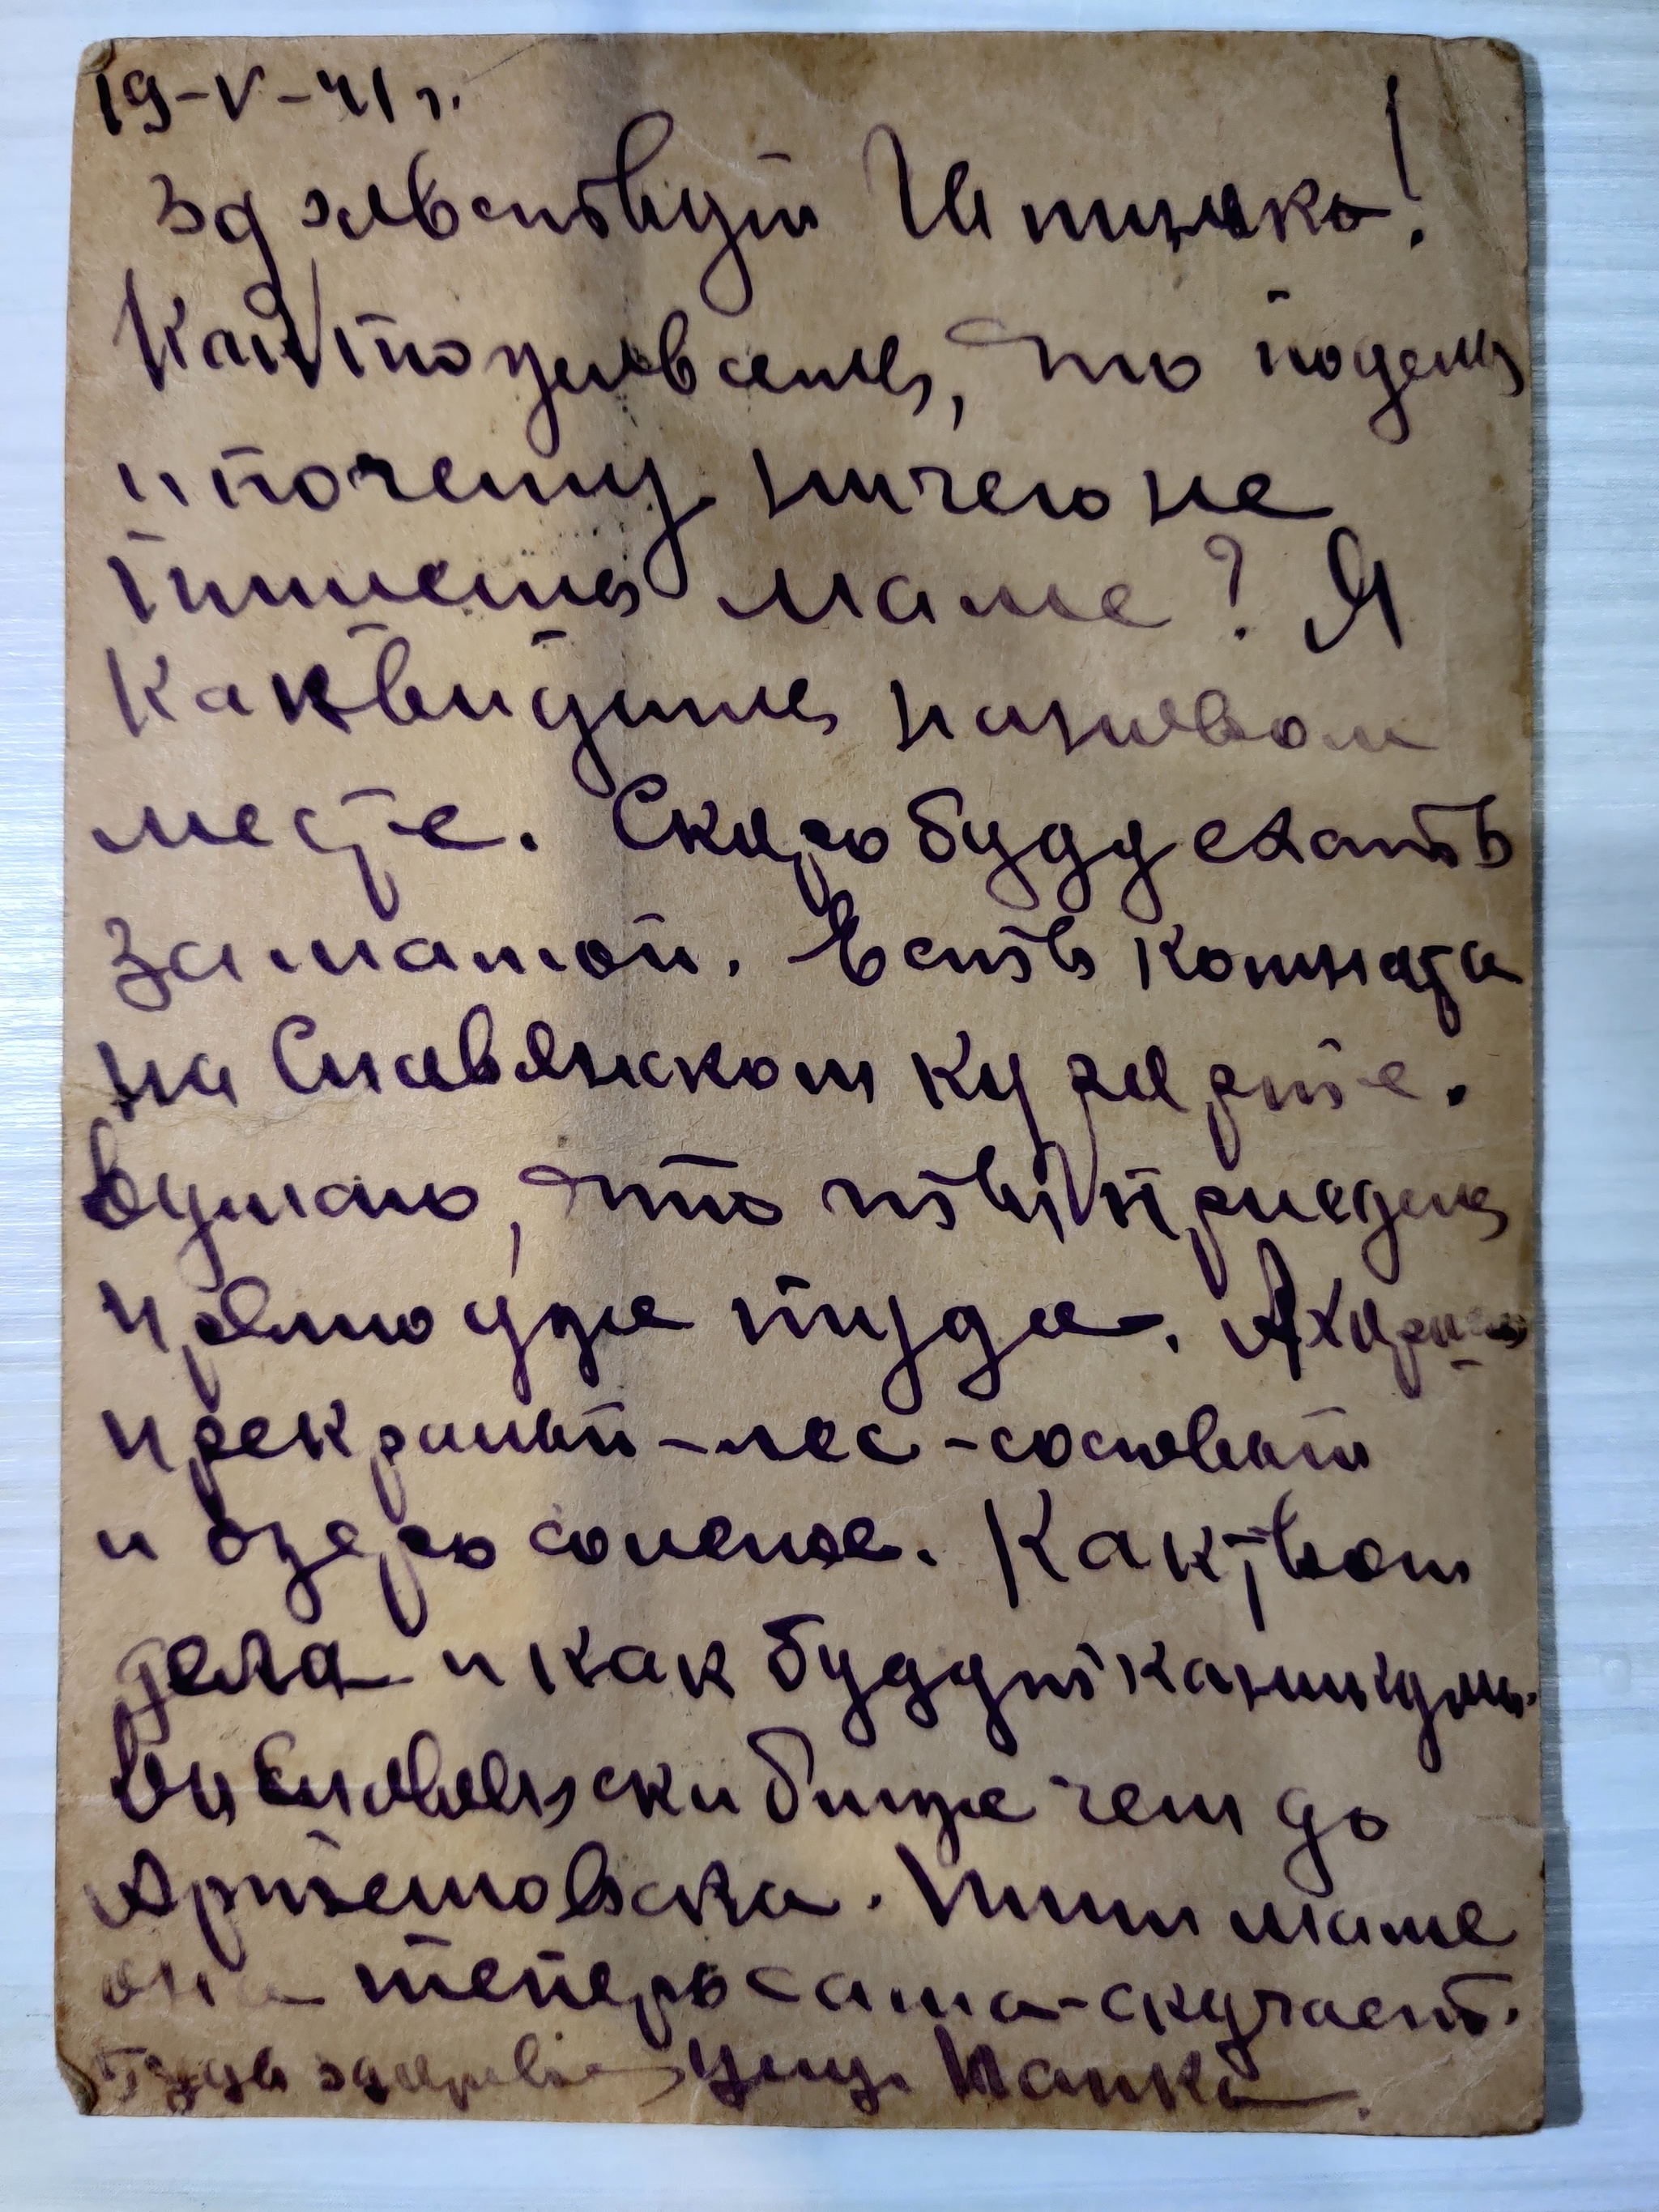 19-V-41 г.
Здравствуй Иннучка!
Как поживаешь, что поделыв
и почему ничего не
пишешь маме? Я
Как видишь на новом
месте. Скоро буду ехать
за мамой. Есть комната
на Славянском курорте.
Думаю, что ты приедешь
прямо уже туда. А курорт
прекрасный - лес - сосновый
и озеро соленое. Как твои
дела и как будут каникулы.
До Славянска ближе чем до
Артемовска. Пиши маме
она теперь сама - скучает.
Будь здорова, целую. Папка.